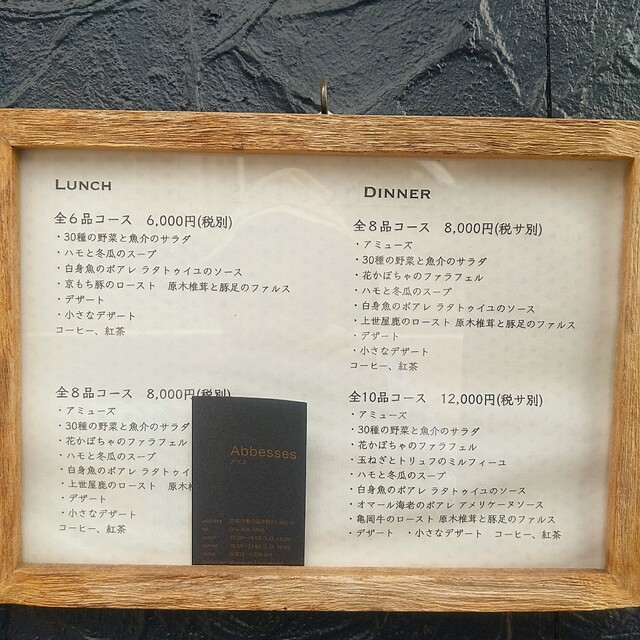 LUNCH
全6品コース 6,000円(税別)
・30種の野菜と魚介のサラダ
・ハモと冬瓜のスープ
・白身魚のポアレ ラタトゥイユのソース
・京もち豚のロースト 原木椎茸と豚足のファルス
・デザート
・小さなデザート
コーヒー、紅茶
全8品コース 8,000円(税別)
・アミューズ
・30種の野菜と魚介のサラダ
・花かぼちゃのファラフェル
・ハモと冬瓜のスープ
・白身魚のポアレ ラタトゥイ
・上世屋鹿のロースト 原木
・デザート
・小さなデザート
コーヒー、紅茶
DINNER
全8品コース 8,000円(税サ別)
・アミューズ
・30種の野菜と魚介のサラダ
・花かぼちゃのファラフェル
・ハモと冬瓜のスープ
・白身魚のポアレ ラタトゥイユのソース
・上世屋鹿のロースト 原木椎茸と豚足のファルス
・デザート
・小さなデザート
コーヒー、紅茶
全10品コース 12,000円(税サ別)
・アミューズ
・30種の野菜と魚介のサラダ
・花かぼちゃのファラフェル
・玉ねぎとトリュフのミルフィーユ
・ハモと冬瓜のスープ
・白身魚のポアレ ラタトゥイユのソース
・オマール海老のポアレ アメリケーヌソース
・亀岡牛のロースト 原木椎茸と豚足のファルス
・デザート ・小さなデザート コーヒー、紅茶
Abbesses